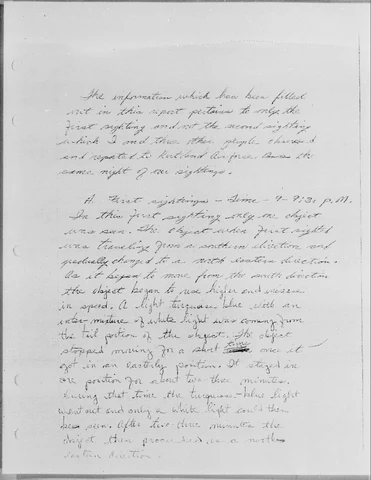 The information which has been filled
out in this report pertains to only the
first sighting and not the second sighting
which I and three other people observed
and reported to Kirtland Air Force Base the
same night of our sightings.
A. First sightings - Time - 9-9:30 p.M.
In this first sighting only one object
was seen. The object when first sighted
was traveling from a southern direction and
gradually changed to a north eastern direction.
As it began to move from the south direction
the object began to rise higher and increase
in speed. A light turquoise blue with an
inter-mixture of white light was coming from
the tail portion of the object. The object
stopped moving for a short time once it
got in an easterly position. It stayed in
one position for about two-three minutes.
During that time the turquoise-blue light
went out and only a white light could then
be seen. After two-three minutes the
object then proceeded in a north
eastern direction.